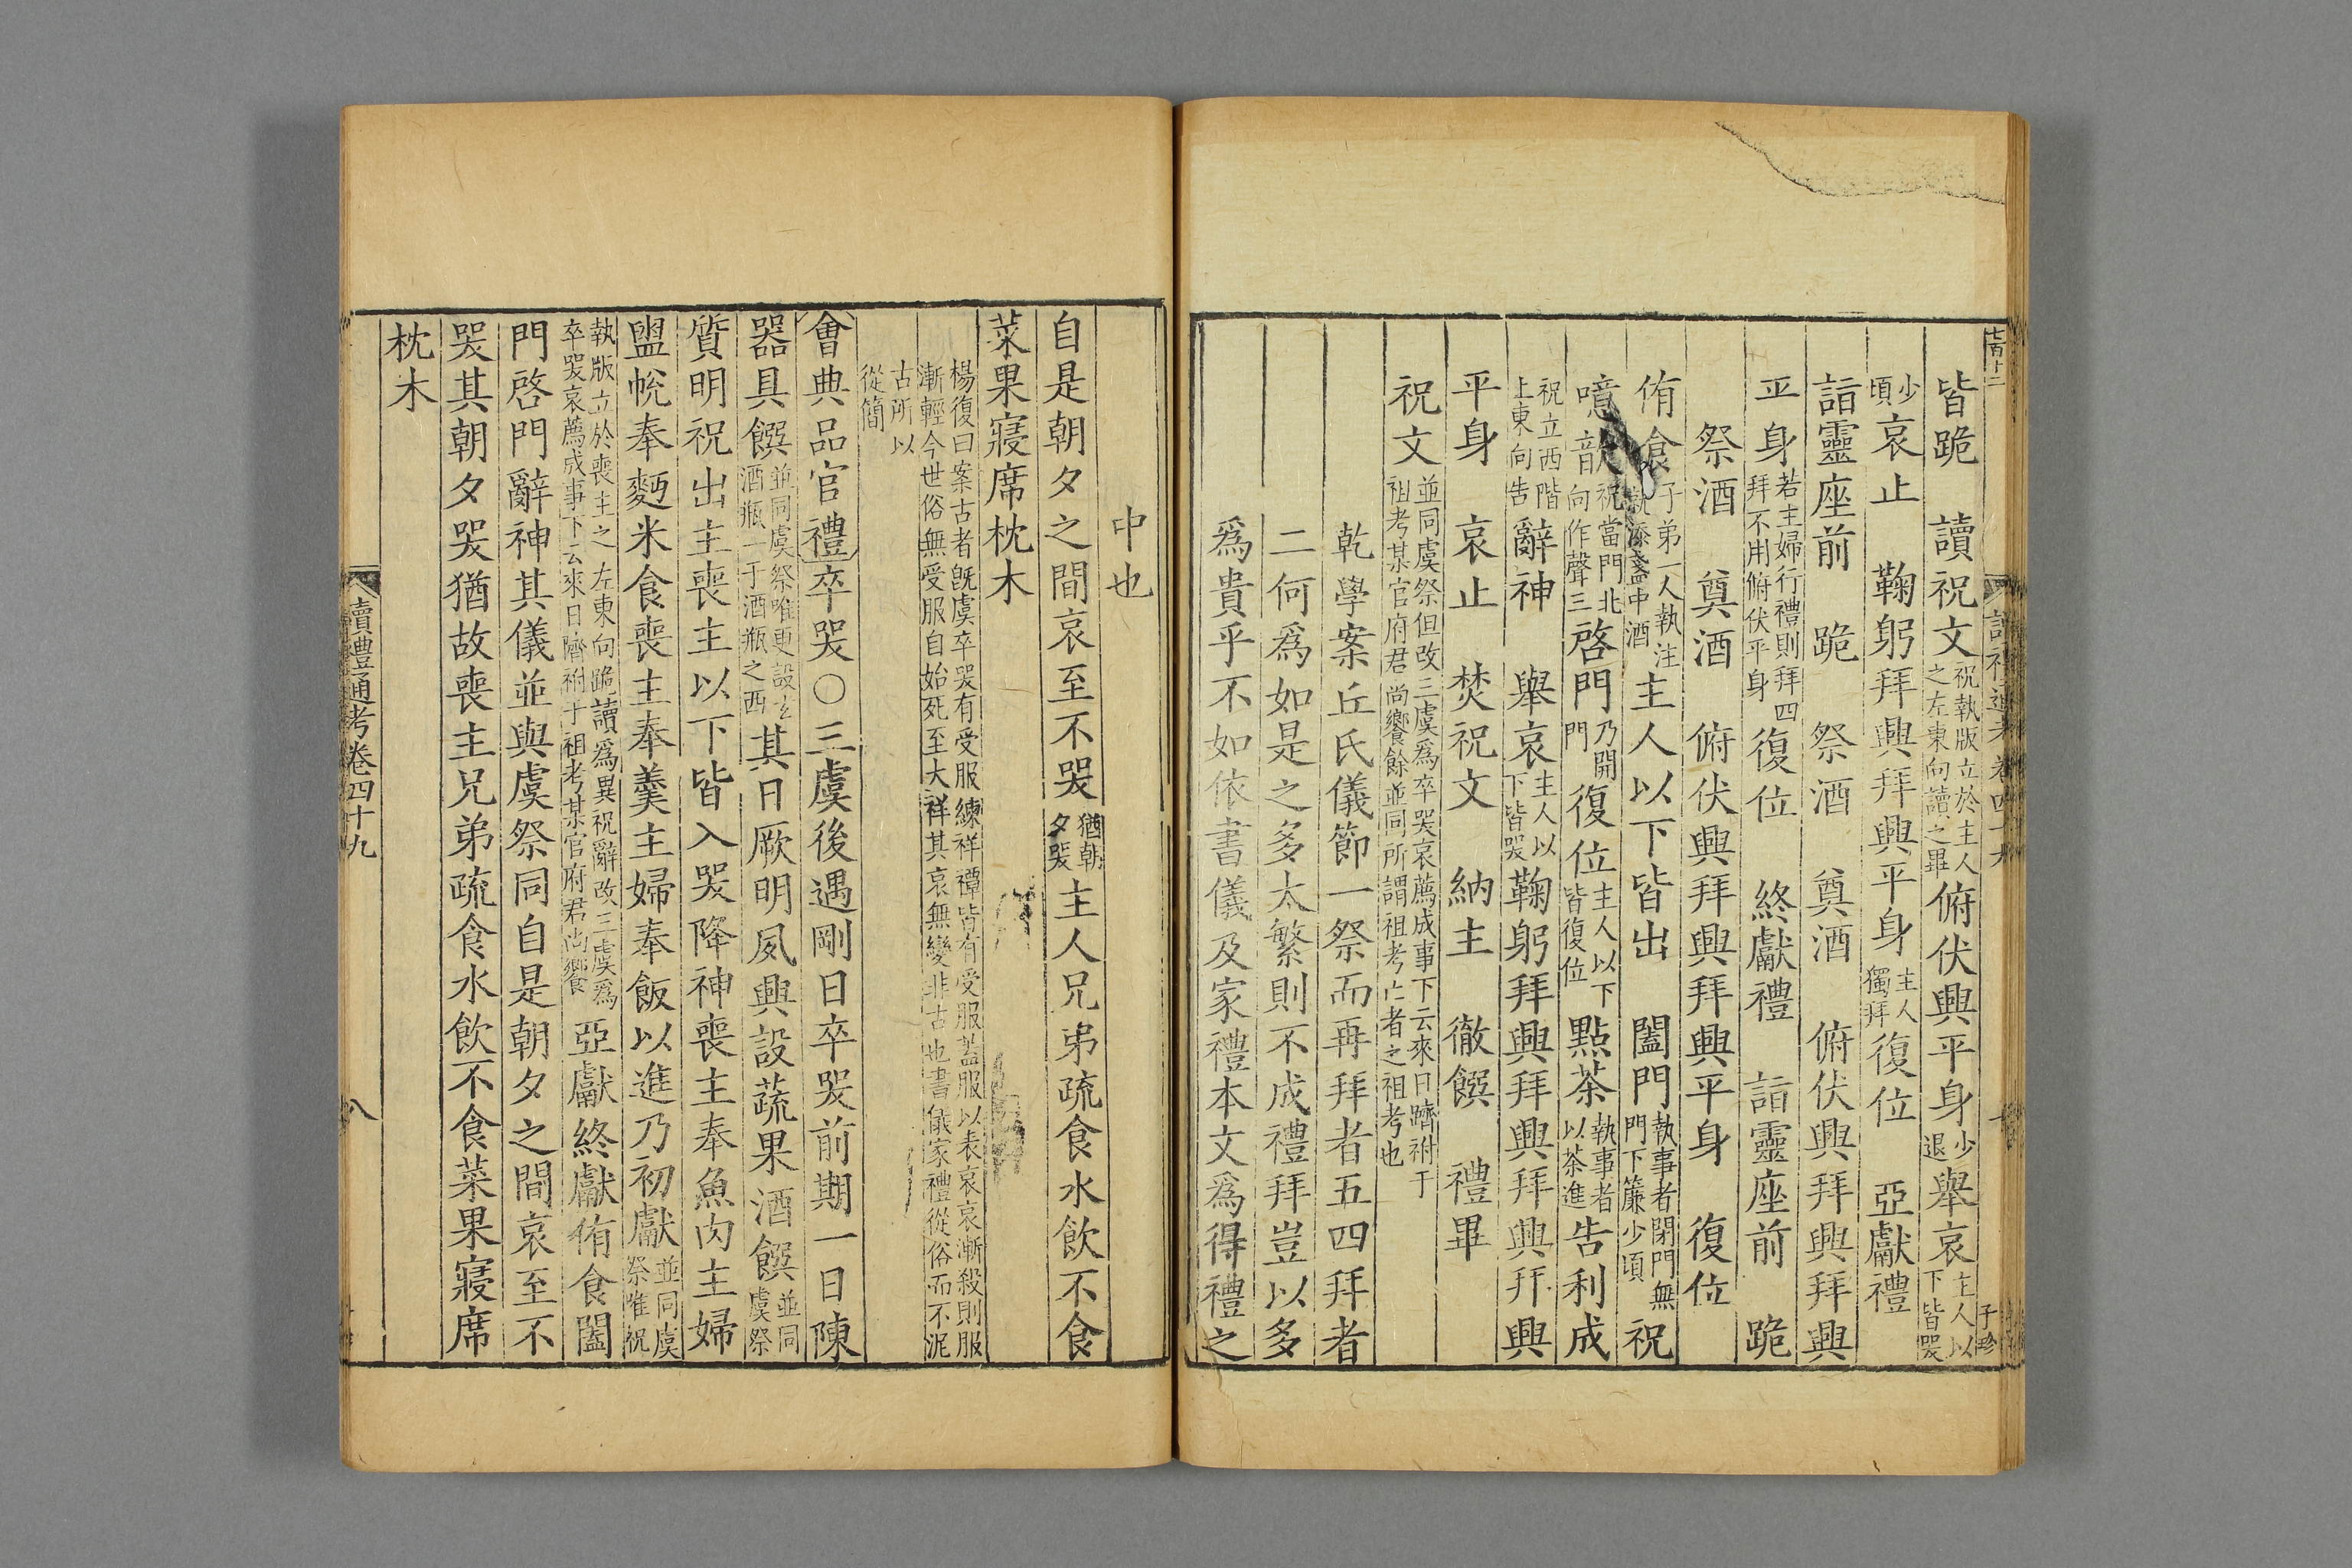 皆跪　讀祝文祝執版立於主人之左東向讀之畢俯伏興平身少退舉哀主人以下皆哭
少頃哀止　鞠躬拜興拜興平身主人獨拜復位　亞獻禮
詣靈座前　跪　祭酒　奠酒　俯伏興拜興拜興
平身若主婦行禮則拜四拜不用俯伏平身復位　終獻禮　詣靈座前　跪
祭酒　奠酒　俯伏興拜興拜興平身　復位
侑食子弟一人執注就添盞中酒主人以下皆出　闔門執事者閉門無門下簾少頃祝
噫歆祝當門北向作聲三啓門乃開門復位主人以下皆復位點茶執事者以茶進告利成
祝立西階上東向告辭神　舉哀主人以下皆哭鞠躬拜興拜興拜興拜興
平身　哀止　焚祝文　納主　徹饌　禮畢
祝文並同虞祭但改三虞爲卒哭哀薦成事下云來日隮祔于祖考某官府君尚饗餘並同所謂祖考亡者之祖考也
乾學案丘氏儀節一祭而再拜者五四拜者
二何爲如是之多太繁則不成禮拜豈以多
爲貴乎不如依書儀及家禮本文爲得禮之
中也
自是朝夕之間哀至不哭猶朝夕哭主人兄弟疏食水飲不食
菜果寢席枕木
楊復曰案古者旣虞卒哭有受服練祥禫皆有受服蓋服以表哀哀漸殺則服
漸輕今世俗無受服自始死至大祥其哀無變非古也書儀家禮從俗而不泥
古所以
從簡
會典品官禮卒哭〇三虞後遇剛日卒哭前期一日陳
器具饌並同虞祭唯更設玄酒瓶一于酒瓶之西其日厥明夙興設蔬果酒饌並同虞祭
質明祝出主喪主以下皆入哭降神喪主奉魚肉主婦
盥帨奉麪米食喪主奉羹主婦奉飯以進乃初獻並同虞祭唯祝
執版立於喪主之左東向跪讀爲異祝辭改三虞爲卒哭哀薦成事下云來日隮祔于祖考某官府君尚饗亞獻終獻侑食闔
門啓門辭神其儀並與虞祭同自是朝夕之間哀至不
哭其朝夕哭猶故喪主兄弟疏食水飲不食菜果寢席
枕木
讀禮通考卷四十九　八